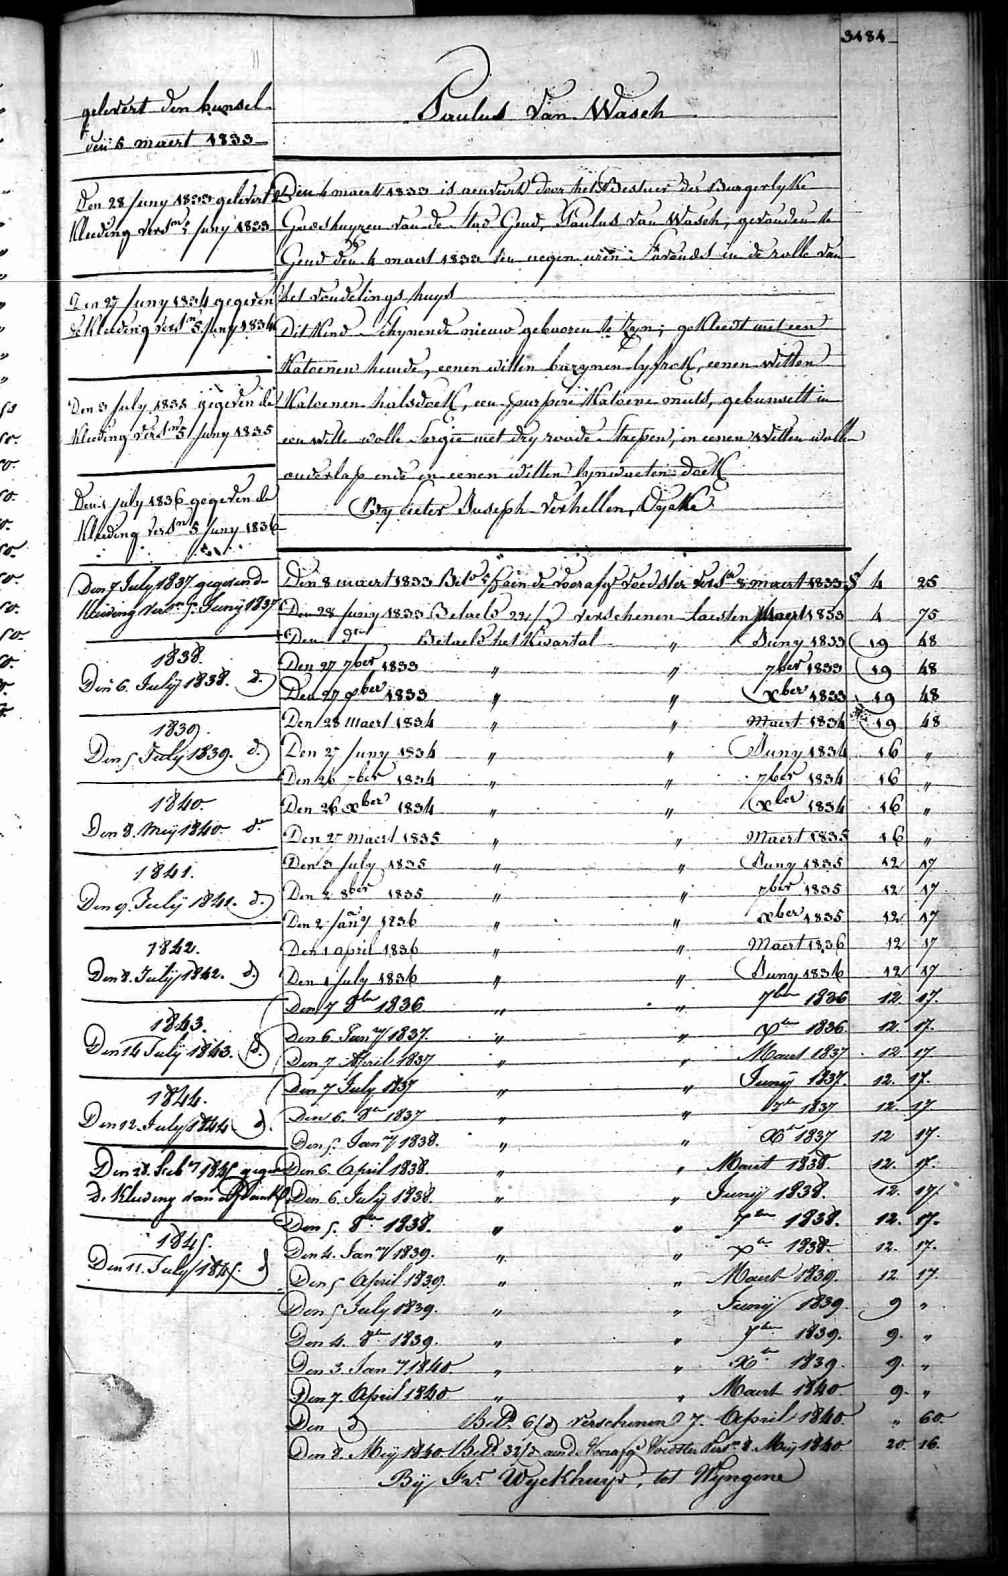 3484
Paulus Van Wasch
gelevert den bunsel
den 5 maert 1833
Den 28 Juny 1833 gelevert de
Kleeding vers.en 5 Juny 1833
Den 27 Juny 1834 gegeven
de Kleeding vers.en 5 Juny 1834
Den 3 July 1835 gegeven de
Kleeding vers.en 5 Juny 1835
Den 1 July 1836 gegeven de
Kleeding vers.en 5 Juny 1836
Den 7 July 1837 gegeven de
Kleeding vers.en 5 Junij 1837
1838.
Den 6. Julij 1838. d.
1839.
Den 5 July 1839. d.
1840.
Den 8. Meij 1840 d.
1841.
Den 9. Julij 1841. d.
1842.
Den 8. Julij 1842. d.
1843.
Den 14 Julij 1843. d.
1844.
Den 12. July 1844 d.
Den 28. Feb.ry 1845 gegeven
d. Kleeding van
1845.
Den 11. July 1845. d
Den 4 maert 1833 is aenveert door het Bestuer der Burgerlyke
Godshuyzen van de stad Gend, Paulus van Wasch, gevonden te
Gend den 4 maert 1833 ten negen uren 's avonds in de rolle van
het vondelingshuys
Dit Kind schynende nieuw gebooren te zyn; gekleedt met een
Katoenen hemde, eenen witten bazynen lyfrok, eenen witten
Katoenen halsdoek, een purpere Katoene muts, gebunselt in
een witte wolle sergie met dry roode strepen, in eenen witten wollen
onderlap ende in eenen witten lynwaeten doek
By Pieter Joseph Verhellen, Dycke
Den 8 maert 1833 Bet. 5/ aen de voorafg voedster vers.en 8 maert 1833 f 4 25
Den 28 Juny 1833 Betaelt 22/ verschenen laesten Maert 1833 4 75
Den d.en Betaelt het Kwartael " Juny 1833 19 48
Den 27 7ber 1833 " " 7ber 1833 19 48
Den 27 xber 1833 " " Xber 1833 19 48
Den 28 maert 1834 " " Maert 1834 19 48
Den 27 Juny 1834 " " Juny 1834 16 "
Den 26 7ber 1834 " " 7ber 1834 16 "
Den 26 xber 1834 " " xber 1834 16 "
Den 27 maert 1835 " " Maert 1835 16 "
Den 3 July 1835 " " Juny 1835 12 17
Den 2 8ber 1835 " " 7ber 1835 12 17
Den 2 Jan.y 1836 " " xber 1835 12 17
Den 1 april 1836 " " Maert 1836 12 17
Den 1 July 1836 " " Juny 1836 12 17
Den 7 8ber 1836 " " 7ber 1836 12. 17.
Den 6. Jan.ry 1837. " " Xber 1836 12. 17.
Den 7 April 1837 " " Maert 1837 12 17
Den 7 July 1837 " " Junij 1837. 12. 17.
Den 6. 8er 1837 " " 7ber 1837 12. 17
Den 5. Jan.ry 1838. " " Xer 1837 12 17.
Den 6. April 1838. " " Maert 1838. 12. 17.
Den 6. Julij 1838. " " Junij 1838. 12. 17.
Den 5. 8ber 1838. " " 7ber 1838. 12. 17.
Den 4. Jan.ry 1839. " " Xer 1838. 12. 17.
Den 5 April 1839. " " Maert 1839. 12 17.
Den 5 July 1839. " " Junij 1839. 9 "
Den 4. 8ber 1839. " " 7ber 1839. 9. "
Den 3. Jan.ry 1840. " " Xer 1839. 9. "
Den 7. April 1840 " " Maert 1840. 9. "
Den d Bet.d 6/d verschenen 7. April 1840. " 60.
Den 8. Meij 1840. Bet.d 32/d aan de Voorafg Voedster vers.en 8 Meij 1840 20. 16.
Bij Fr. Wyckhuys, tot Wyngene